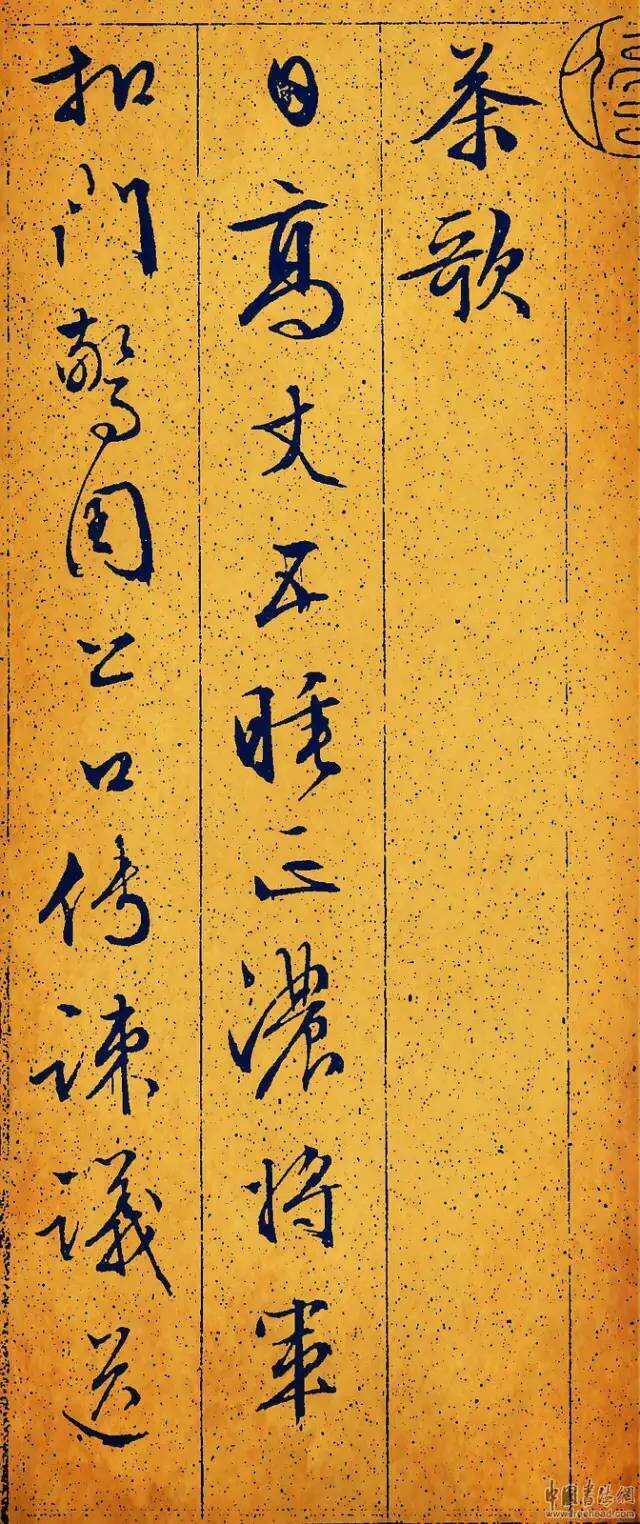 茶歌
日高丈五睡正濃將軍
扣门驚周公口傳諫議送
中國書法網
www.freehead.com